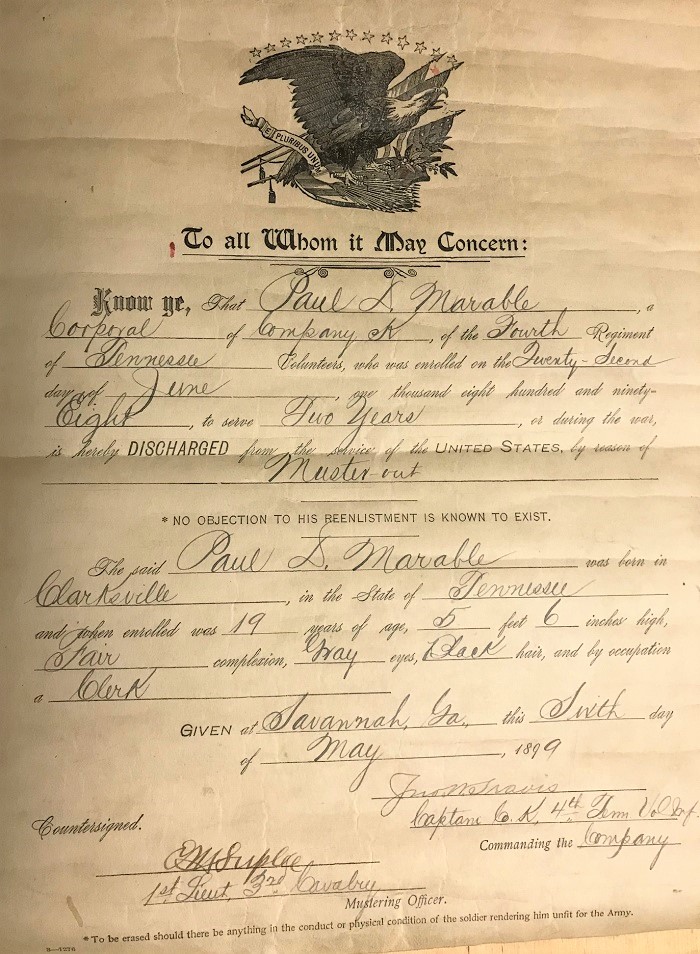 E PLURIBUS UNUM
To all Whom it May Concern:
Know ye, That Paul D. Marable, a
Corporal of Company K, of the Fourth Regiment
of Tennessee Volunteers, who was enrolled on the Twenty-Second
day of June, one thousand eight hundred and ninety-
Eight, to serve Two Years, or during the war,
is hereby DISCHARGED from the service of the UNITED STATES, by reason of
Muster-out
* NO OBJECTION TO HIS REENLISTMENT IS KNOWN TO EXIST.
The said Paul D. Marable was born in
Clarksville, in the State of Tennessee
and when enrolled was 19 years of age, 5 feet 6 inches high,
Fair complexion, Gray eyes, Black hair, and by occupation
a Clerk
GIVEN at Savannah, Ga., this Sixth day
of May, 1899
Jno Travis
Captain Co. K, 4th Tenn Vol Inf.
Countersigned.
Commanding the Company
1st Lieut, 3rd Cavalry
Mustering Officer.
* To be erased should there be anything in the conduct or physical condition of the soldier rendering him unfit for the Army.